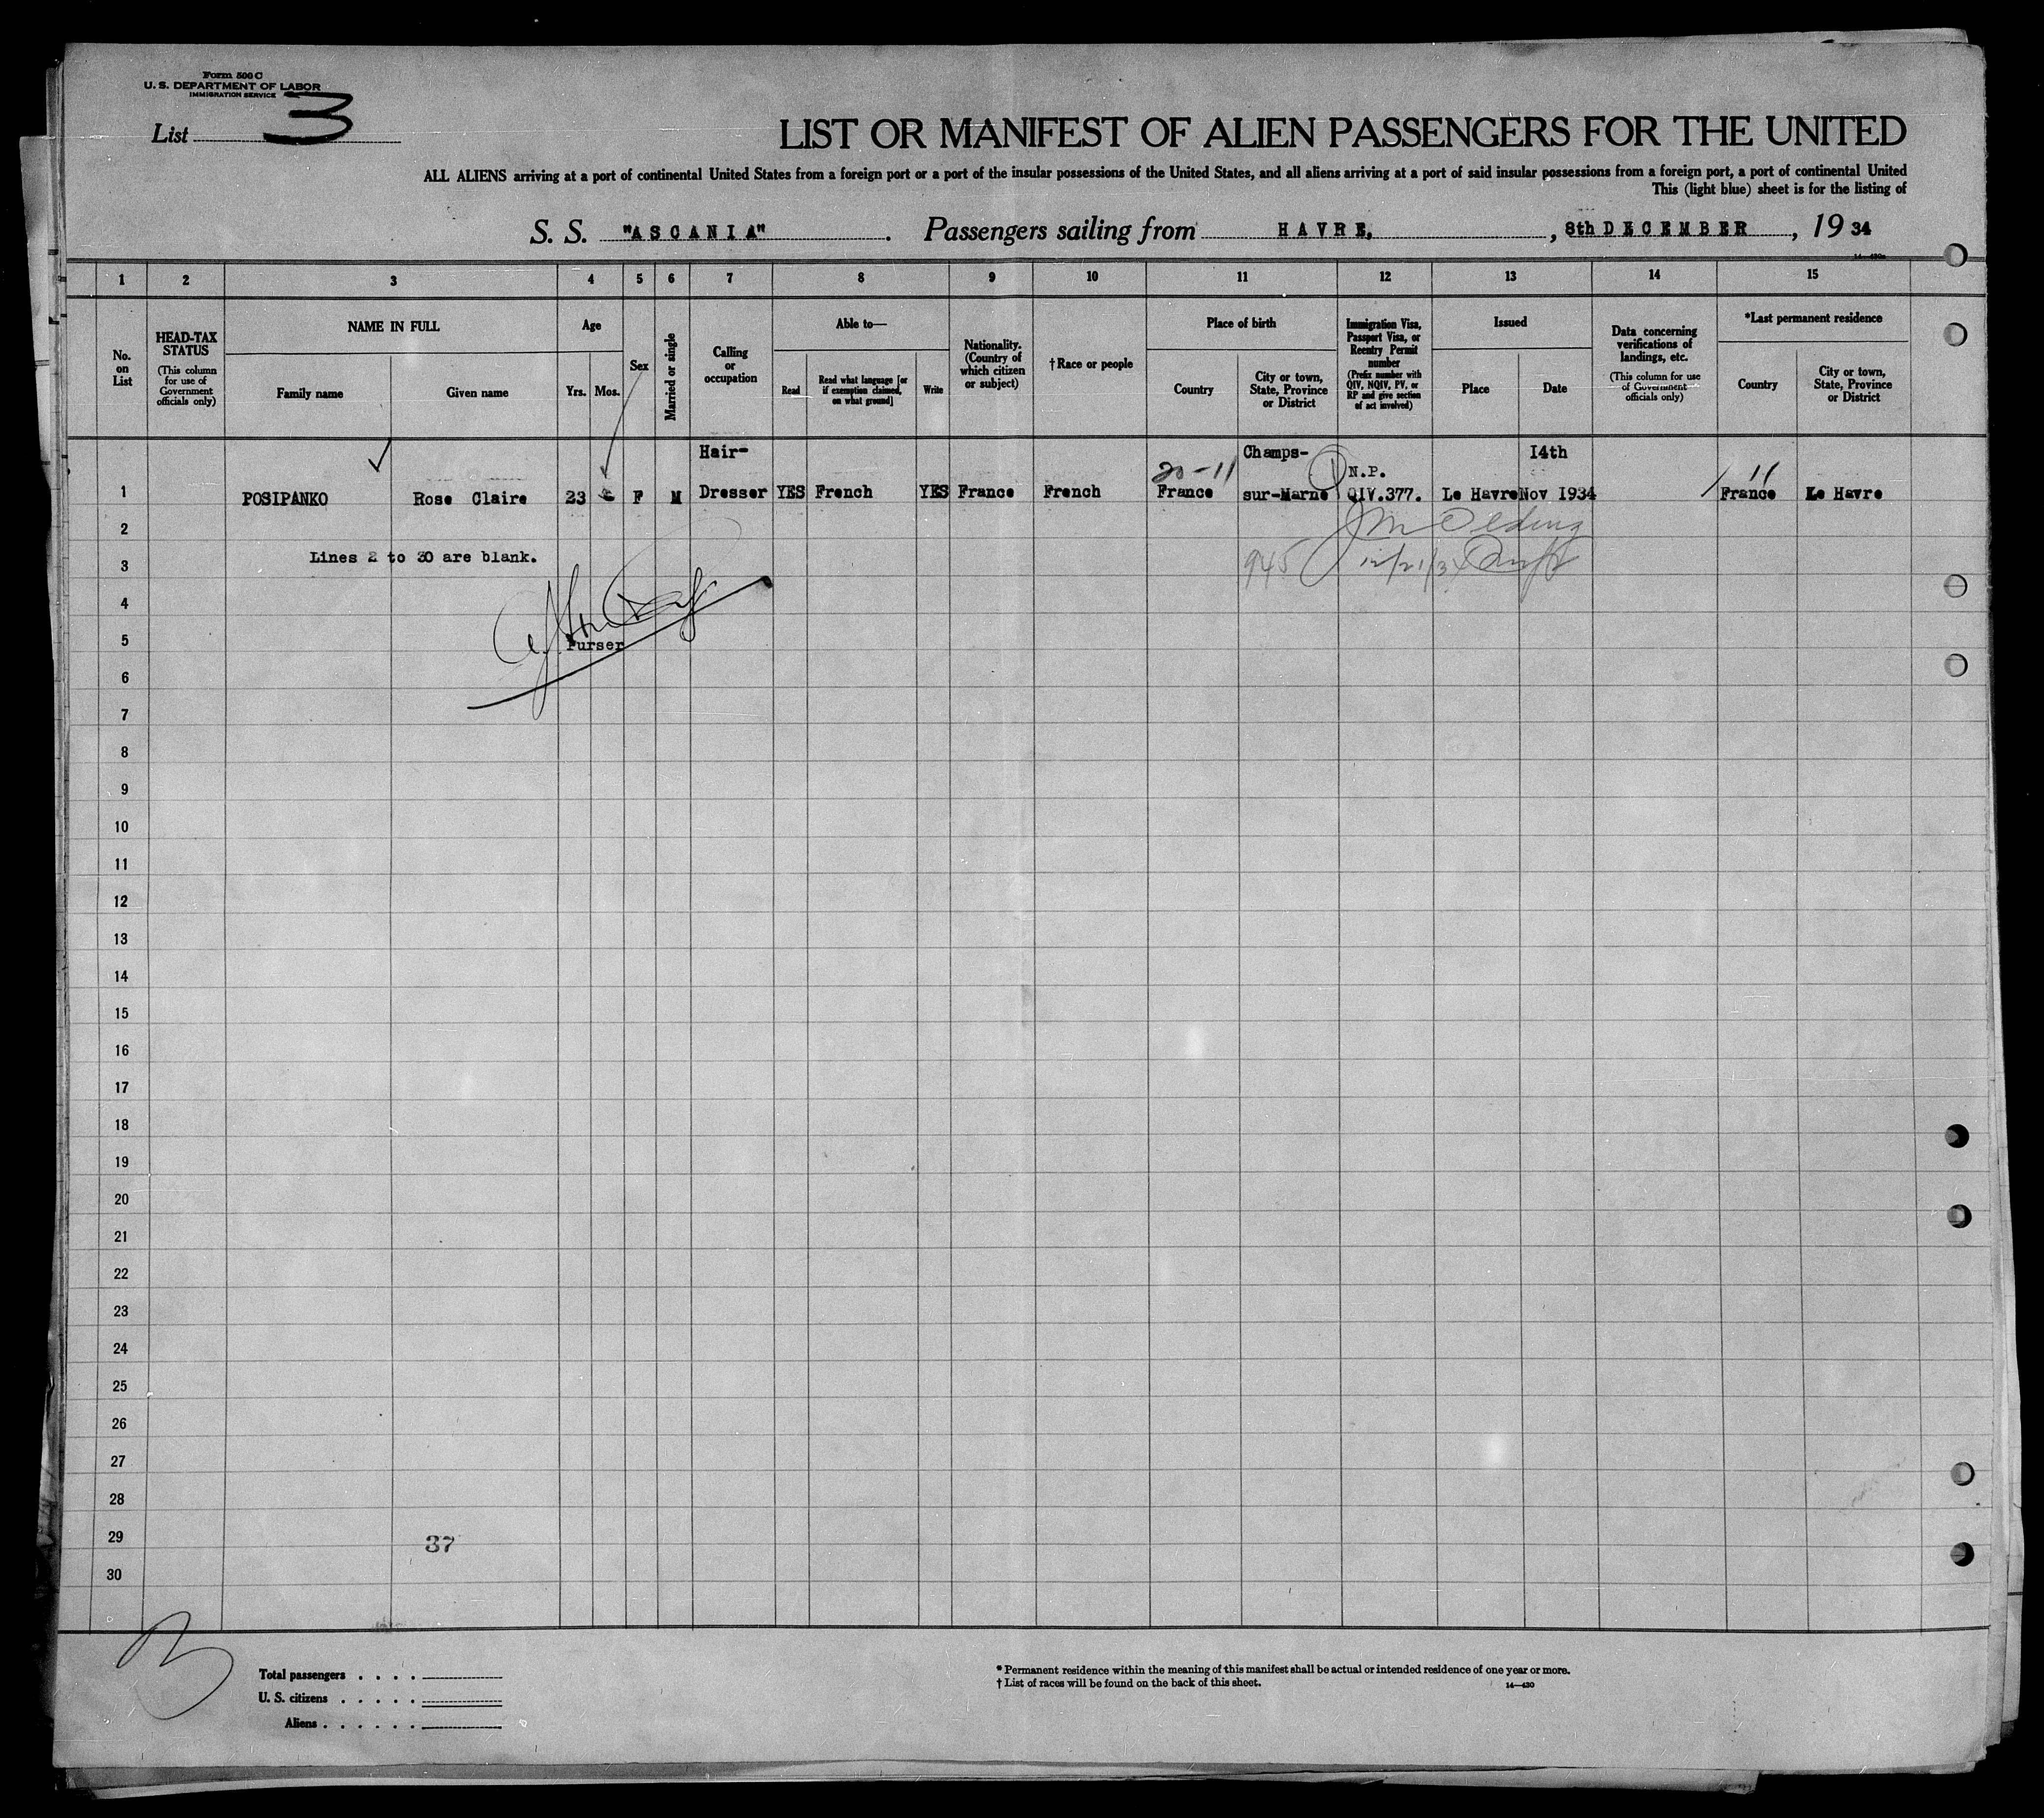 Form 500 C
U. S. DEPARTMENT OF LABOR
IMMIGRATION SERVICE
List 3
LIST OR MANIFEST OF ALIEN PASSENGERS FOR THE UNITED
ALL ALIENS arriving at a port of continental United States from a foreign port or a port of the insular possessions of the United States, and all aliens arriving at a port of said insular possessions from a foreign port, a port of continental United
This (light blue) sheet is for the listing of
S. S. "ASCANIA". Passengers sailing from HAVRE, , 8th DECEMBER , 19 34
14-430a
1 2 3 4 5 6 7 8 9 10 11 12 13 14 15
No. on List
HEAD-TAX STATUS
(This column for use of Government officials only)
NAME IN FULL
Family name
Given name
Age
Yrs. Mos.
Sex
Married or single
Calling or occupation
Able to—
Read
Read what language [or if exemption claimed, on what ground]
Write
Nationality. (Country of which citizen or subject)
†Race or people
Place of birth
Country
City or town, State, Province or District
Immigration Visa, Passport Visa, or Reentry Permit number
(Prefix number with QIV, NQIV, PV, or RP and give section of act involved)
Issued
Place
Date
Data concerning verifications of landings, etc.
(This column for use of Government officials only)
*Last permanent residence
Country
City or town, State, Province or District
Hair- Champs- 14th
20-11 N.P. 11
1 POSIPANKO Rose Claire 23 F M Dresser YES French YES France French France sur-Marne QIV.377. Le Havre Nov 1934 France Le Havre
2
Lines 2 to 30 are blank.
3
945 12/21/34
4
5
Purser
6
7
8
9
10
11
12
13
14
15
16
17
18
19
20
21
22
23
24
25
26
27
28
29
37
30
Total passengers . . . .
U. S. citizens . . . . .
Aliens . . . . . .
* Permanent residence within the meaning of this manifest shall be actual or intended residence of one year or more.
† List of races will be found on the back of this sheet.
14—430